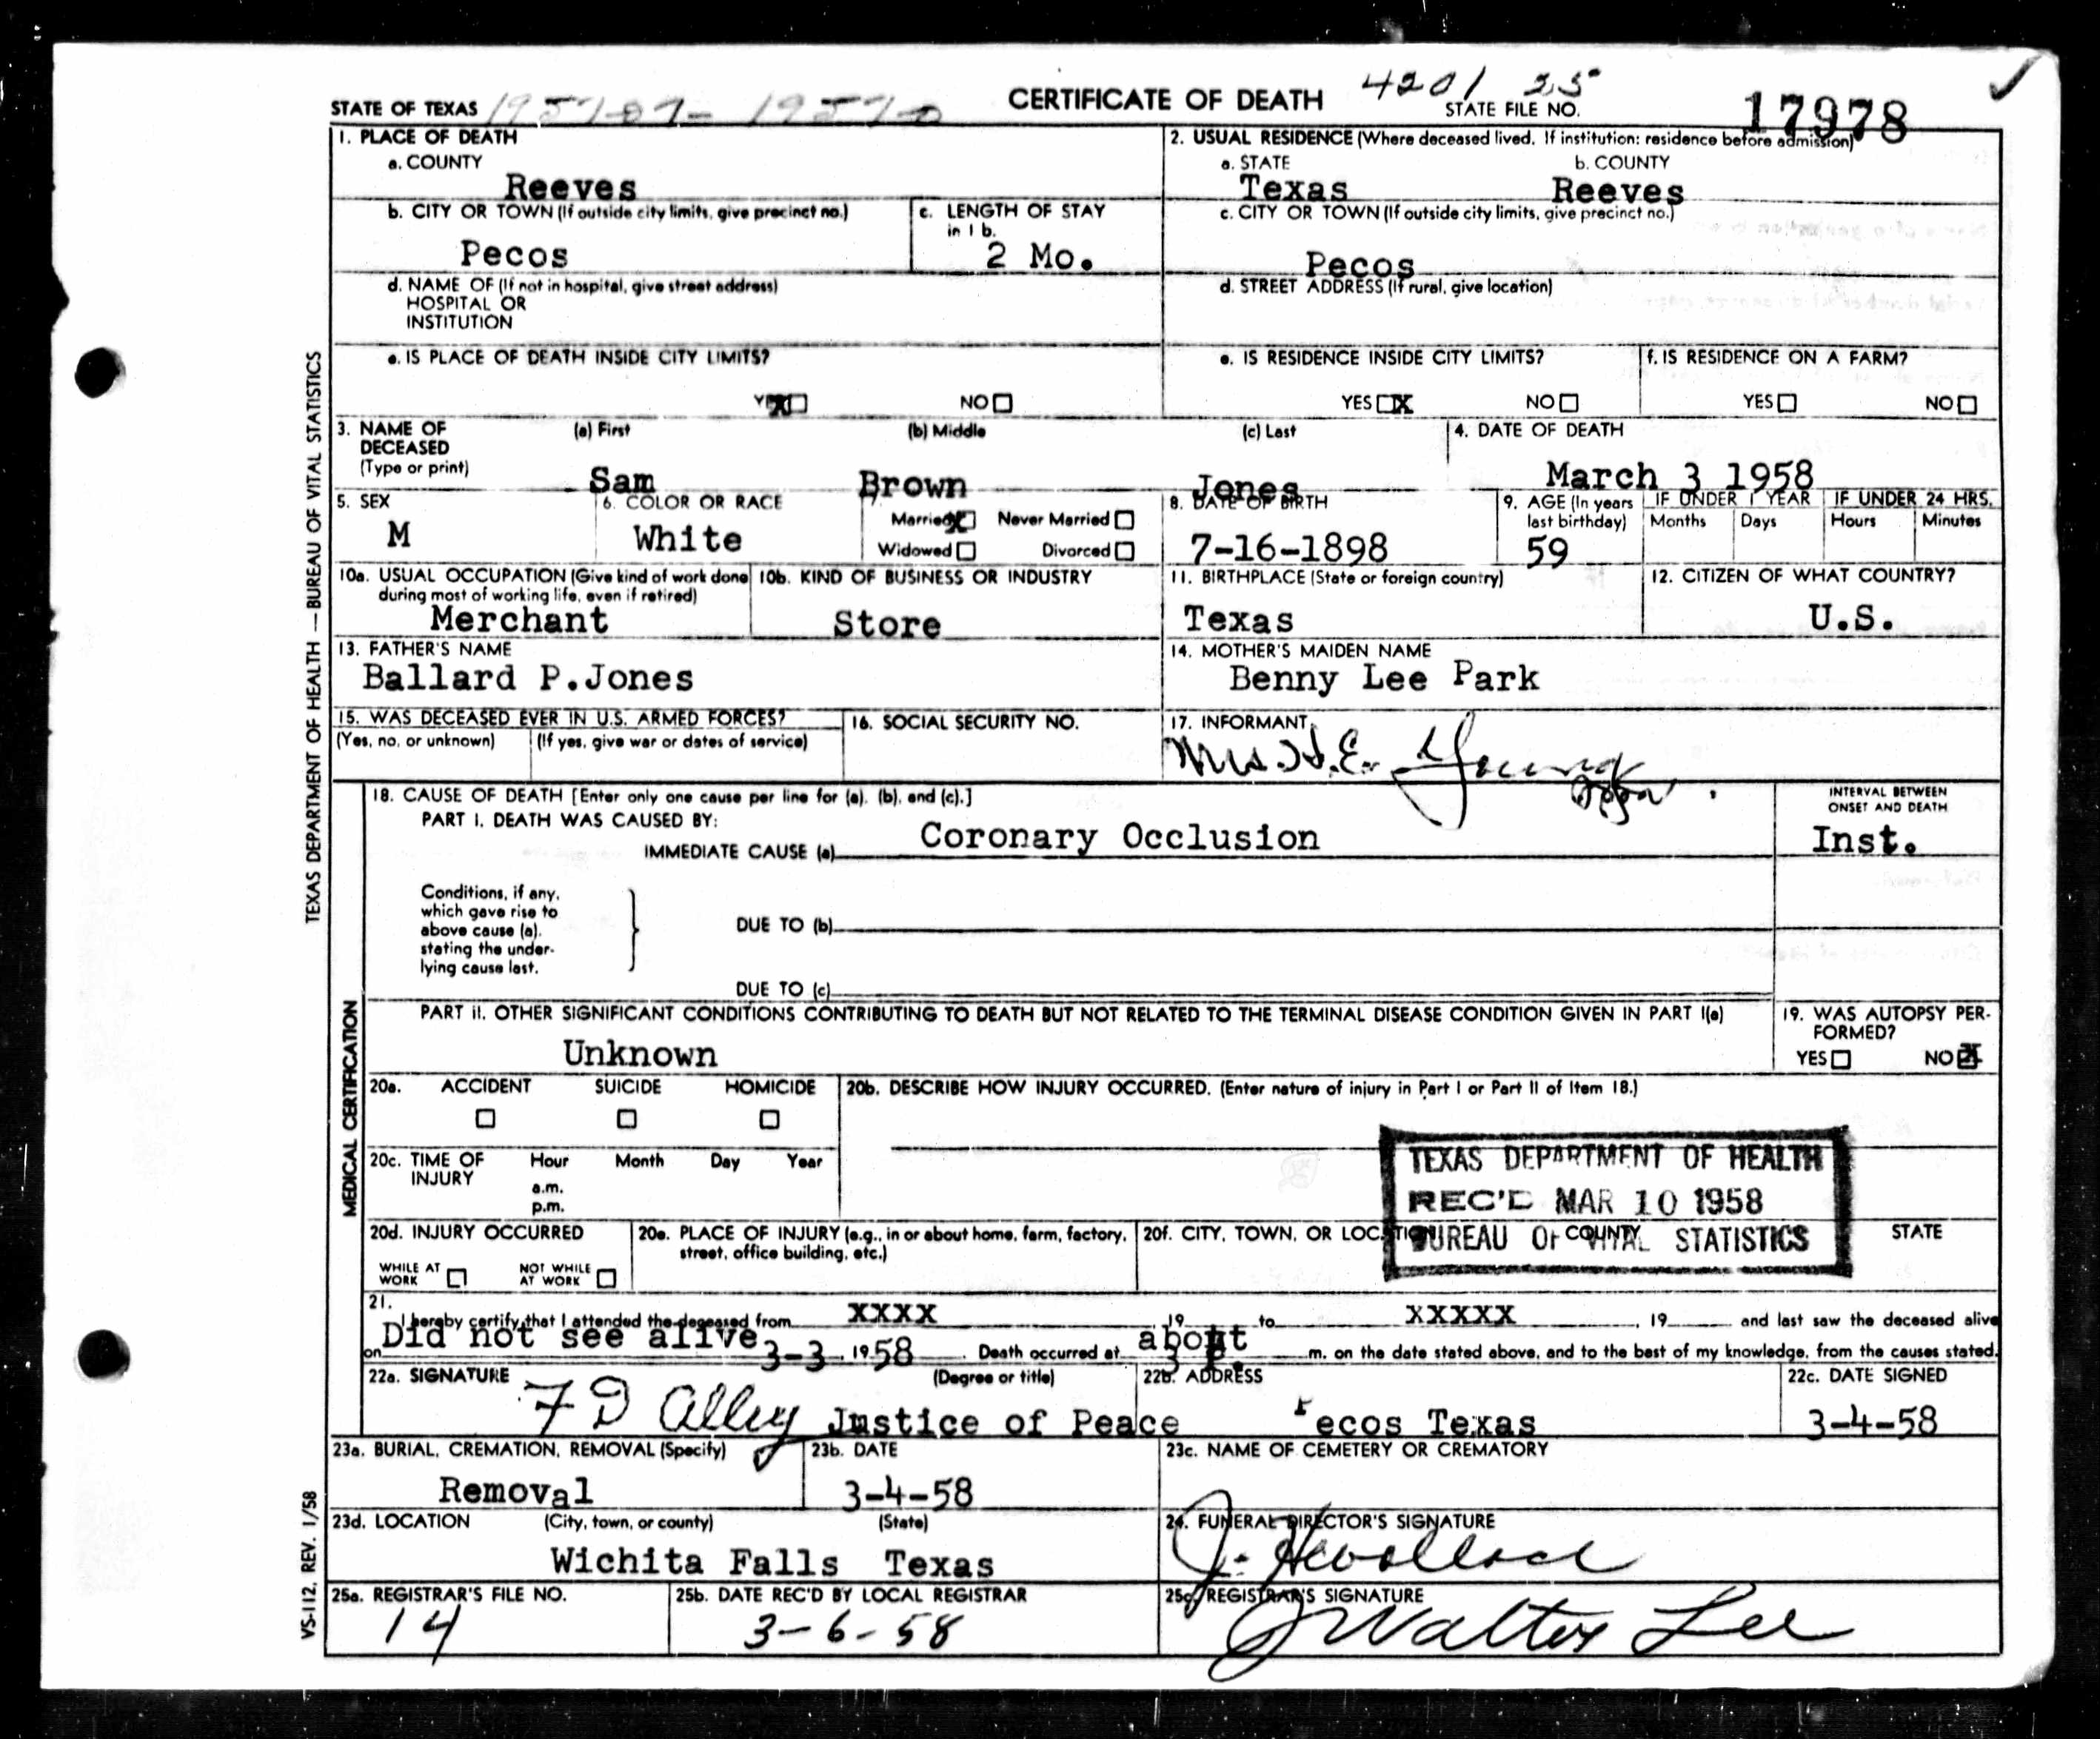 4201 25
STATE OF TEXAS CERTIFICATE OF DEATH STATE FILE NO. 17978
1. PLACE OF DEATH 2. USUAL RESIDENCE (Where deceased lived. If institution: residence before admission)
a. COUNTY a. STATE b. COUNTY
Reeves Texas Reeves
b. CITY OR TOWN (If outside city limits, give precinct no.) c. LENGTH OF STAY in 1 b. c. CITY OR TOWN (If outside city limits, give precinct no.)
Pecos 2 Mo. Pecos
d. NAME OF (If not in hospital, give street address) d. STREET ADDRESS (If rural, give location)
HOSPITAL OR
INSTITUTION
e. IS PLACE OF DEATH INSIDE CITY LIMITS? e. IS RESIDENCE INSIDE CITY LIMITS? f. IS RESIDENCE ON A FARM?
YES X NO YES X NO YES NO
3. NAME OF (a) First (b) Middle (c) Last 4. DATE OF DEATH
DECEASED
(Type or print) Sam Brown Jones March 3 1958
5. SEX 6. COLOR OR RACE 7. Married X Never Married 8. DATE OF BIRTH 9. AGE (In years last birthday) IF UNDER 1 YEAR IF UNDER 24 HRS.
Months Days Hours Minutes
M White Widowed Divorced 7-16-1898 59
10a. USUAL OCCUPATION (Give kind of work done 10b. KIND OF BUSINESS OR INDUSTRY 11. BIRTHPLACE (State or foreign country) 12. CITIZEN OF WHAT COUNTRY?
during most of working life, even if retired)
Merchant Store Texas U.S.
13. FATHER'S NAME 14. MOTHER'S MAIDEN NAME
Ballard P.Jones Benny Lee Park
15. WAS DECEASED EVER IN U.S. ARMED FORCES? 16. SOCIAL SECURITY NO. 17. INFORMANT
(Yes, no, or unknown) (If yes, give war or dates of service) Mrs. H.E. Young
18. CAUSE OF DEATH [Enter only one cause per line for (a), (b), and (c).] INTERVAL BETWEEN
ONSET AND DEATH
PART I. DEATH WAS CAUSED BY:
IMMEDIATE CAUSE (a) Coronary Occlusion Inst.
Conditions, if any,
which gave rise to
above cause (a),
stating the under-
lying cause last.
DUE TO (b)
DUE TO (c)
PART II. OTHER SIGNIFICANT CONDITIONS CONTRIBUTING TO DEATH BUT NOT RELATED TO THE TERMINAL DISEASE CONDITION GIVEN IN PART I(a) 19. WAS AUTOPSY PER-
FORMED?
Unknown YES NO X
20a. ACCIDENT SUICIDE HOMICIDE 20b. DESCRIBE HOW INJURY OCCURRED. (Enter nature of injury in Part I or Part II of Item 18.)
20c. TIME OF INJURY Hour Month Day Year
a.m.
p.m.
TEXAS DEPARTMENT OF HEALTH
REC'D MAR 10 1958
BUREAU OF VITAL STATISTICS
20d. INJURY OCCURRED 20e. PLACE OF INJURY (e.g., in or about home, farm, factory, 20f. CITY, TOWN, OR LOCATION COUNTY STATE
street, office building, etc.)
WHILE AT WORK NOT WHILE AT WORK
21.
I hereby certify that I attended the deceased from XXXX, 19 to XXXXX, 19 and last saw the deceased alive
Did not see alive about
on 3-3, 1958. Death occurred at 3 P. m. on the date stated above, and to the best of my knowledge, from the causes stated.
22a. SIGNATURE (Degree or title) 22b. ADDRESS 22c. DATE SIGNED
F D Alley Justice of Peace Pecos Texas 3-4-58
23a. BURIAL, CREMATION, REMOVAL (Specify) 23b. DATE 23c. NAME OF CEMETERY OR CREMATORY
Removal 3-4-58
23d. LOCATION (City, town, or county) (State) 24. FUNERAL DIRECTOR'S SIGNATURE
Wichita Falls Texas
25a. REGISTRAR'S FILE NO. 25b. DATE REC'D BY LOCAL REGISTRAR 25c. REGISTRAR'S SIGNATURE
14 3-6-58 Walter Lee
TEXAS DEPARTMENT OF HEALTH — BUREAU OF VITAL STATISTICS
MEDICAL CERTIFICATION
VS-112, REV. 1/58